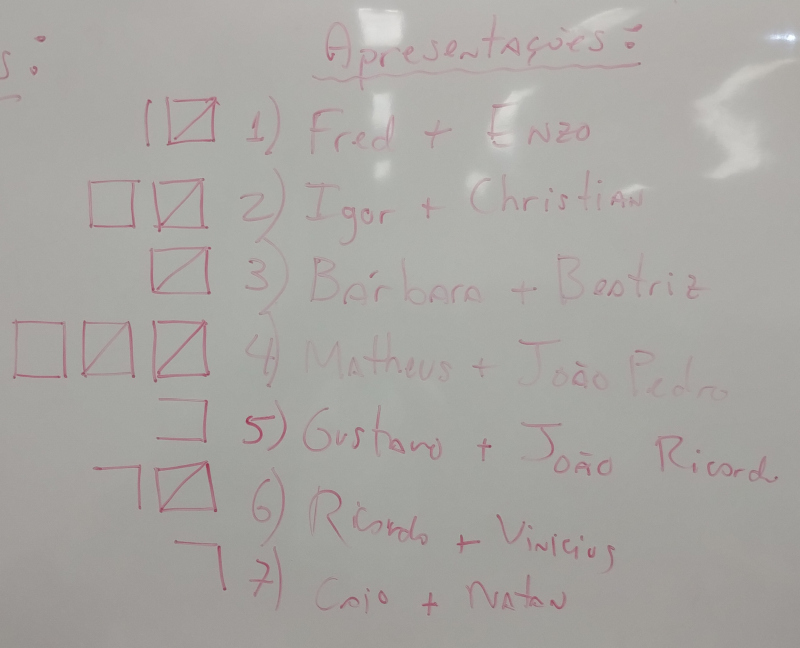 s:
Apresentações:
1) Fred + Enzo
2) Igor + Christian
3) Bárbara + Beatriz
4) Matheus + João Pedro
5) Gustavo + João Ricardo
6) Ricardo + Vinícius
7) Caio + Natan